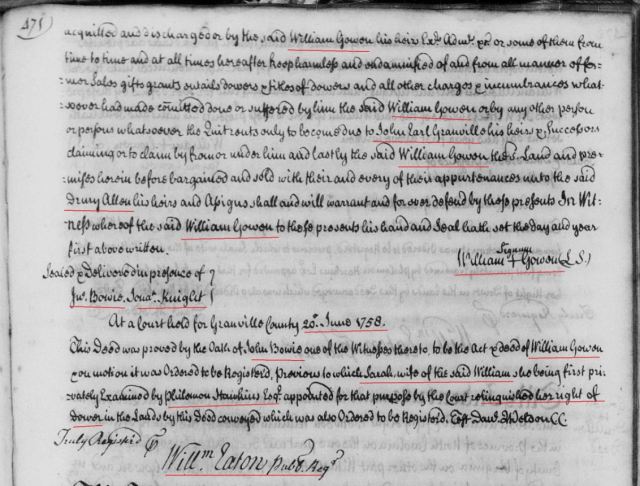 475
acquitted and discharged or by the said William Gowen his heirs Exrs Admrs &c or some of them from
time to time and at all times hereafter keep harmless and endamnified of and from all manner of for-
mer Sales gifts grants entails dowers & titles of dowers and all other charges & incumbrances what-
soever had made comitted done or suffered by him the said William Gowen or by any other person
or persons whatsoever the Quitrents only to become due to John Earl Granville his heirs & Successors
claiming or to claim by from or under him and lastly the said William Gowen the sd. Land and pre-
mises herein before bargained and sold with their and every of their appurtenances unto the said
Drury Allen his heirs and Assigns shall and will warrant and for ever defend by these presents In Wit-
ness whereof the said William Gowen to these presents his hand and Seal hath set the day and year
first above written.
Signum
William + Gowen (L.S.)
Sealed & Delivered in presence of
Jno. Bowie, Jona. Knight
At a Court held for Granville County 20th. June 1758.
This Deed was proved by the Oath of John Bowie one of the Witnesses thereto, to be the Act & deed of William Gowen
& on motion it was Ordered to be Registerd. Previous to which Sarah, wife of the said William she being first pri-
vately Examined by Philemon Hawkins Esqr. appointed for that purpose by the Court relinquished her right of
Dower in the Lands by this Deed conveyed which was also Ordered to be Registerd. Test Danl. Weldon CC
Truly Registerd ⅌
Willm. Eaton Pubk. Regr.